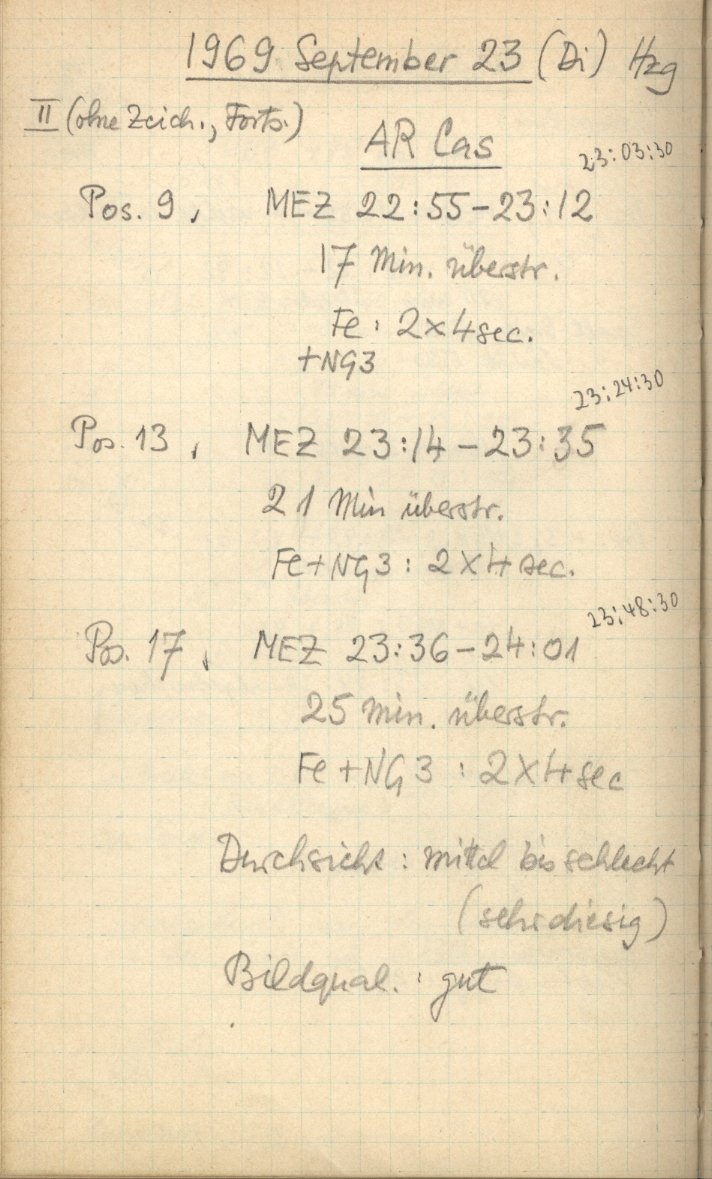 1969 September 23 (Di) Hzg
II (ohne Zeich., Forts.)
AR Cas
23:03:30
Pos. 9, MEZ 22:55-23:12
17 Min. überstr.
Fe: 2x4sec.
+NG3
23:24:30
Pos. 13, MEZ 23:14-23:35
21 Min überstr.
Fe+NG3: 2x4 sec.
23:48:30
Pos. 17, MEZ 23:36-24:01
25 Min. überstr.
Fe+NG3: 2x4 sec
Durchsicht: mittel bis schlecht
(sehr diesig)
Bildqual.: gut